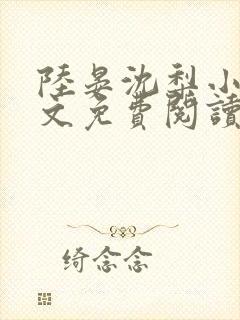 陸晏沈梨小
文免費閱讀
绮念念